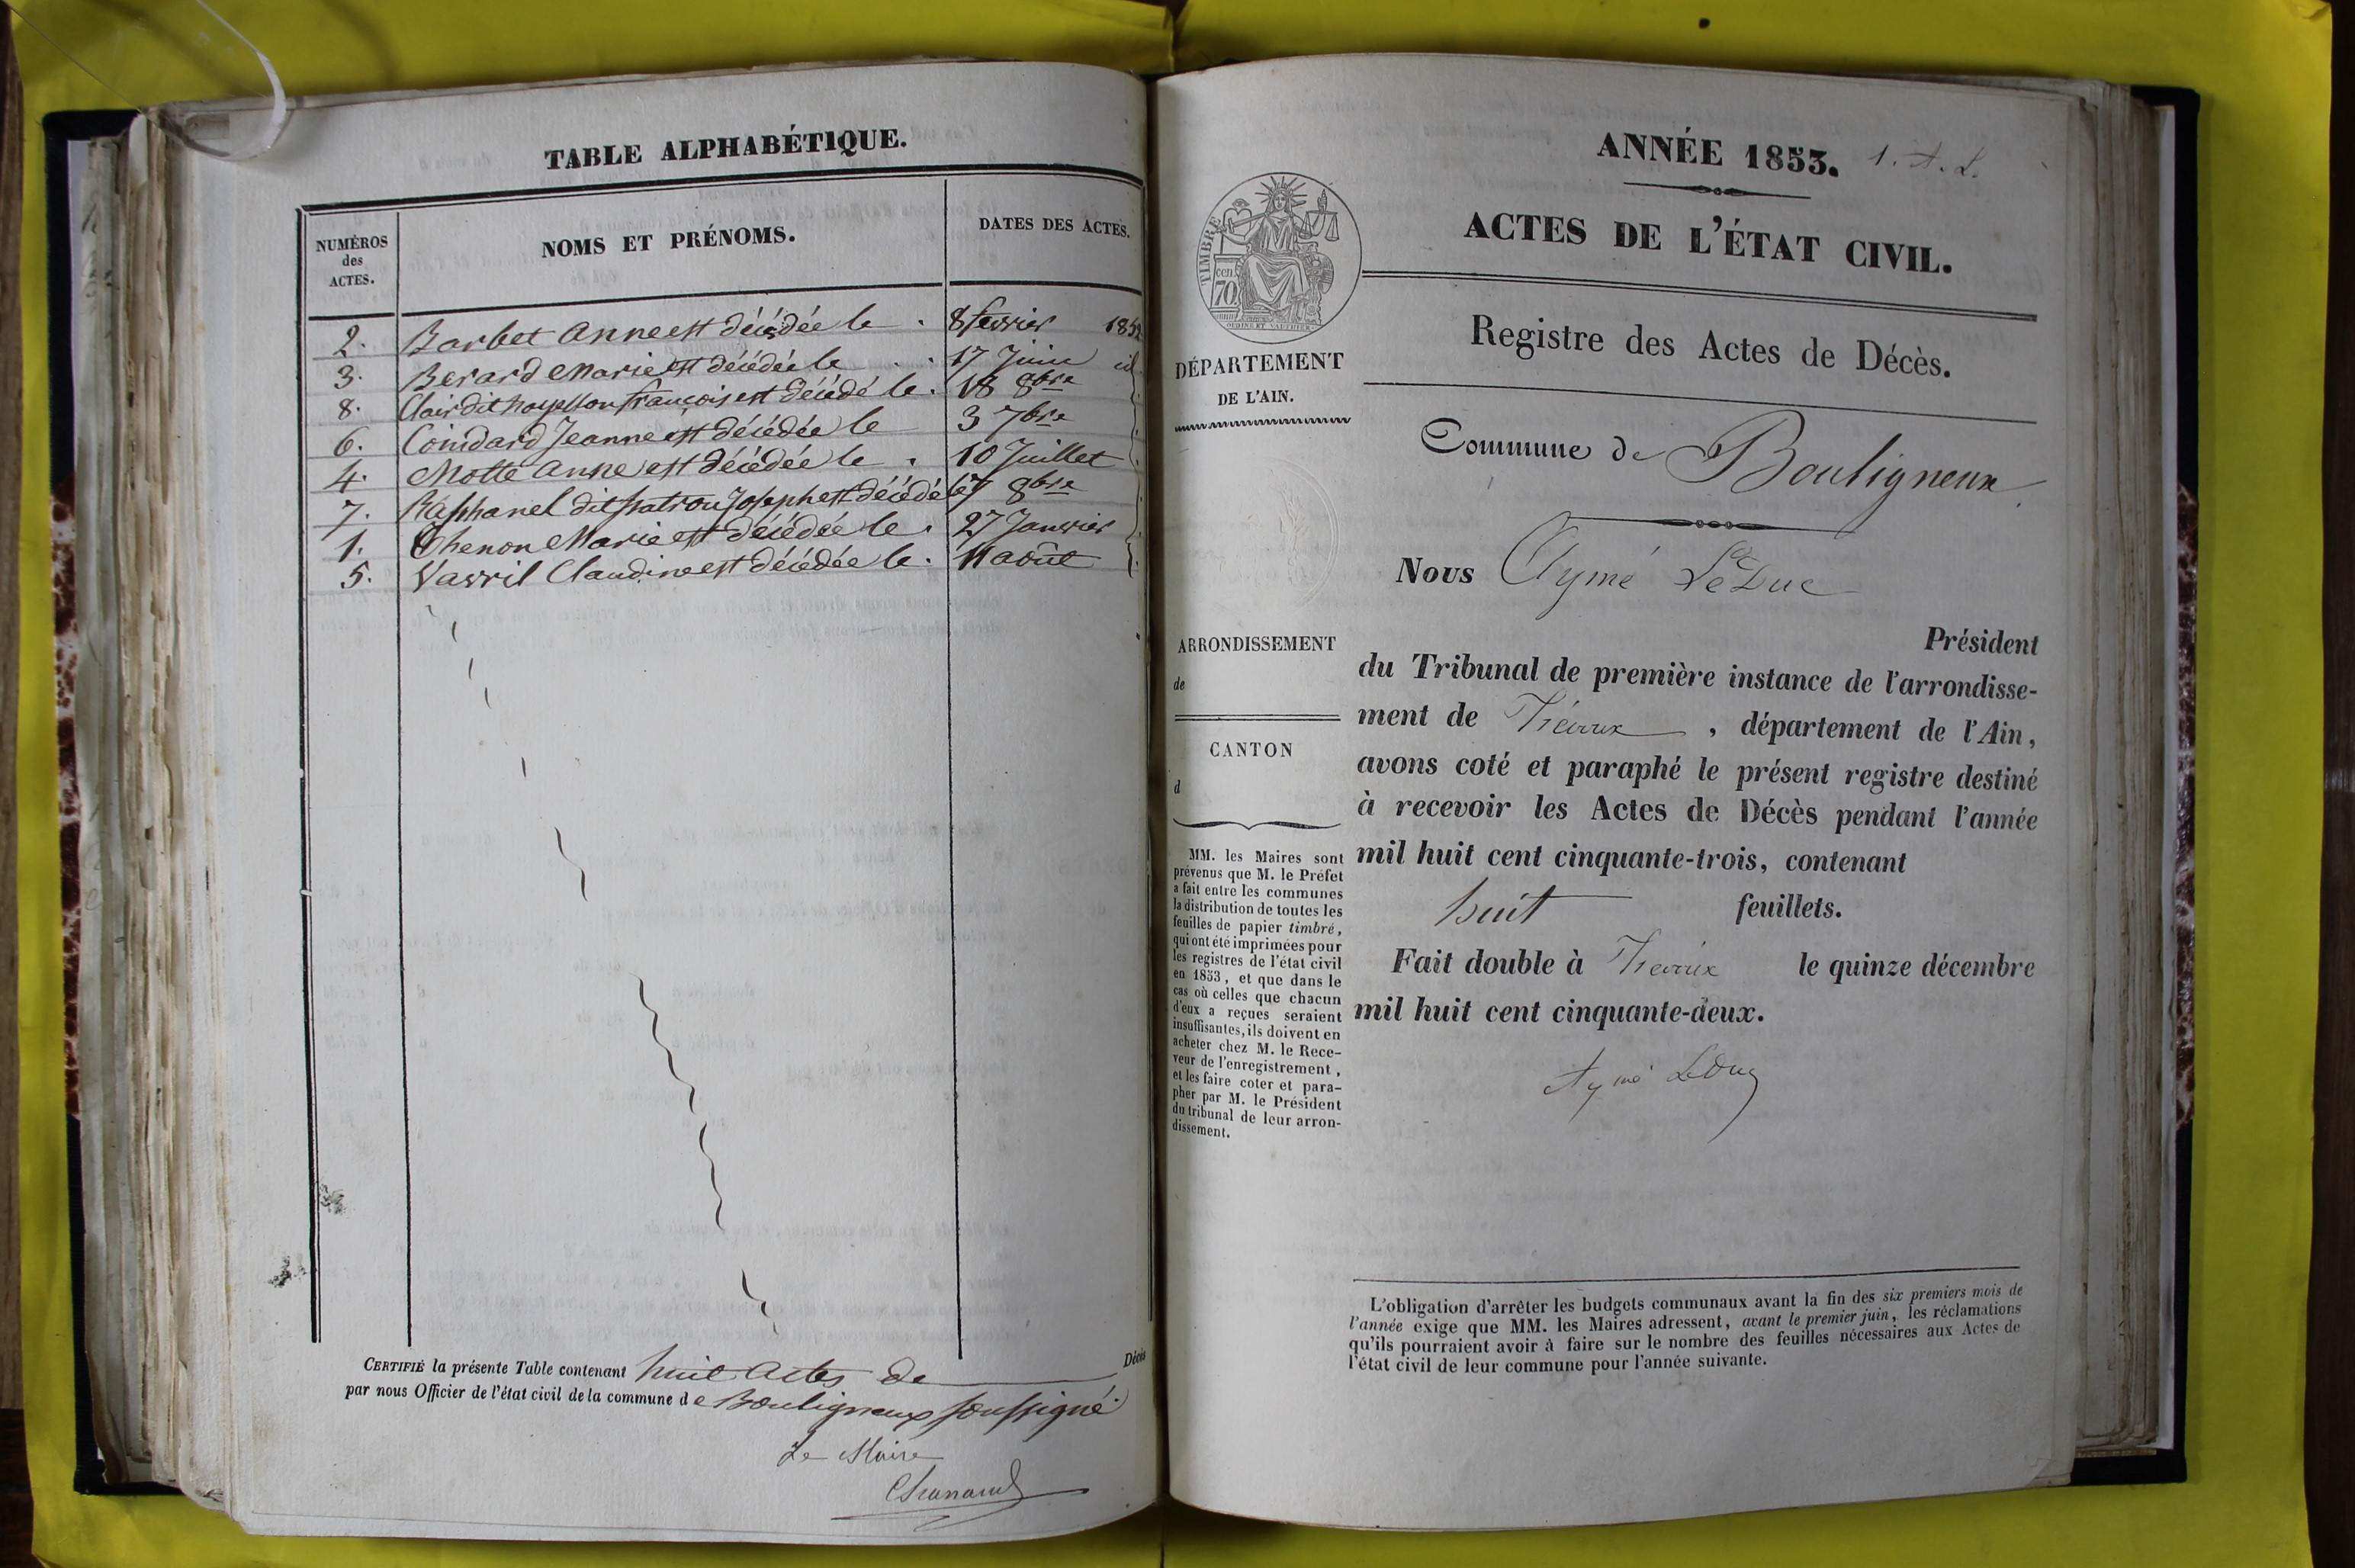 TABLE ALPHABÉTIQUE.
NUMÉROS
des
ACTES.
NOMS ET PRÉNOMS.
DATES DES ACTES.
2. Barbet Anne est décédée le . 8 fevrier 1852
3. Berard Marie est décédée le . . 17 Juin id
8. Clair dit François est décédé le . 18 8bre
6. Coindard Jeanne est décédée le 3 7bre
4. Motte Anne est décédée le . 10 Juillet
7. Raphanel dit Joseph est décédé le 7 8bre
1. Thenon Marie est décédée le . 27 Janvier
5. Vavril Claudine est décédée le . 11 août
CERTIFIÉ la présente Table contenant huit actes de Décès
par nous Officier de l'état civil de la commune de Bouligneux soussigné
Le Maire
ANNÉE 1853. 1. A. L.
ACTES DE L'ÉTAT CIVIL.
TIMBRE
cen.
70
DÉPARTEMENT
DE L'AIN.
Registre des Actes de Décès.
Commune de Bouligneux
Nous Aymé Le Duc
Président
du Tribunal de première instance de l'arrondisse-
ment de Trévoux , département de l'Ain,
avons coté et paraphé le présent registre destiné
à recevoir les Actes de Décès pendant l'année
mil huit cent cinquante-trois, contenant
huit feuillets.
Fait double à Trévoux le quinze décembre
mil huit cent cinquante-deux.
Aymé LeDuc
ARRONDISSEMENT
de
CANTON
d
MM. les Maires sont
prévenus que M. le Préfet
a fait entre les communes
la distribution de toutes les
feuilles de papier timbré,
qui ont été imprimées pour
les registres de l'état civil
en 1853, et que dans le
cas où celles que chacun
d'eux a reçues seraient
insuffisantes, ils doivent en
acheter chez M. le Rece-
veur de l'enregistrement,
et les faire coter et para-
pher par M. le Président
du tribunal de leur arron-
dissement.
L'obligation d'arrêter les budgets communaux avant la fin des six premiers mois de
l'année exige que MM. les Maires adressent, avant le premier juin, les réclamations
qu'ils pourraient avoir à faire sur le nombre des feuilles nécessaires aux Actes de
l'état civil de leur commune pour l'année suivante.